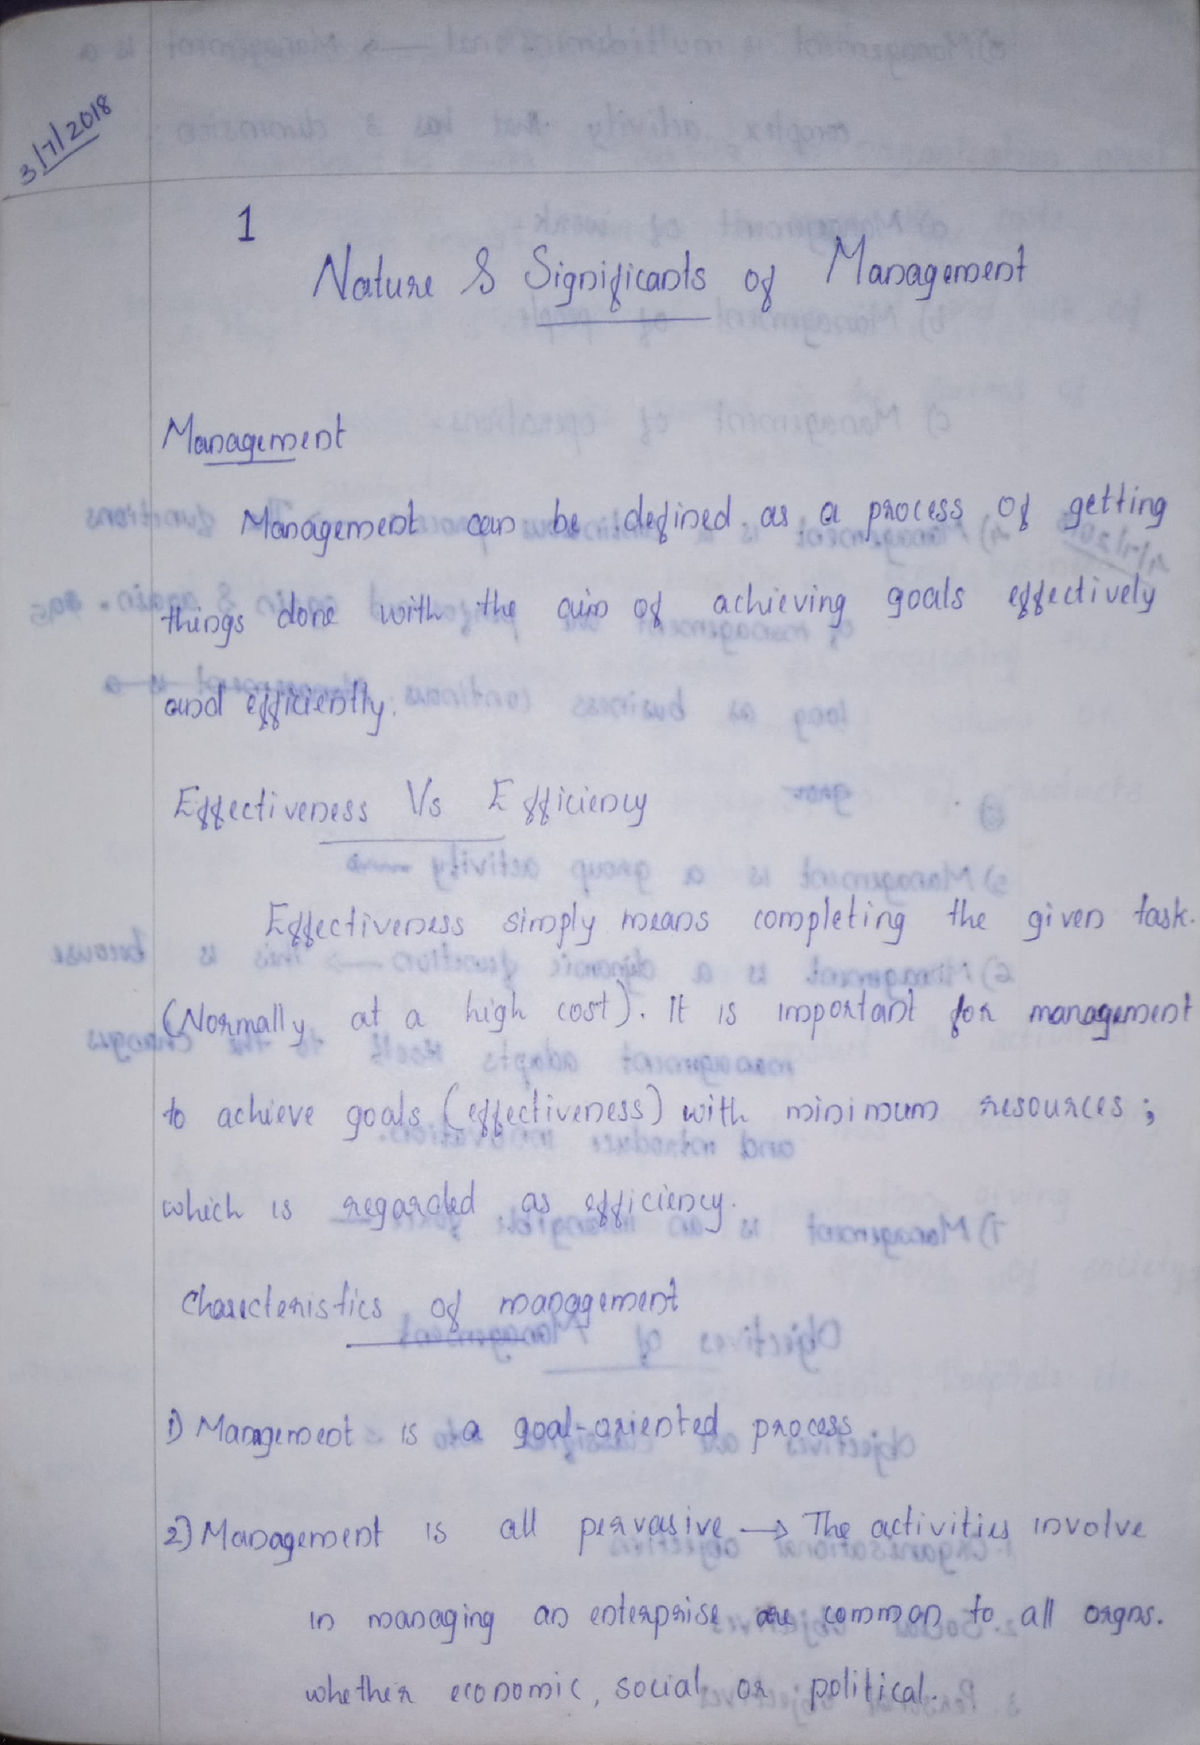 3/7/2018
1
Nature & Significants of Management
Management
Management can be defined as a process of getting
things done with the aim of achieving goals effectively
and efficiently.
Effectiveness Vs Efficiency
Effectiveness simply means completing the given task.
(Normally at a high cost). It is important for management
to achieve goals (effectiveness) with minimum resources;
which is regarded as efficiency.
Charecteristics of management
1) Management is a goal-oriented process
2) Management is all pervasive → The activities involve
in managing an enterprise are common to all orgns.
whether economic, social or political.